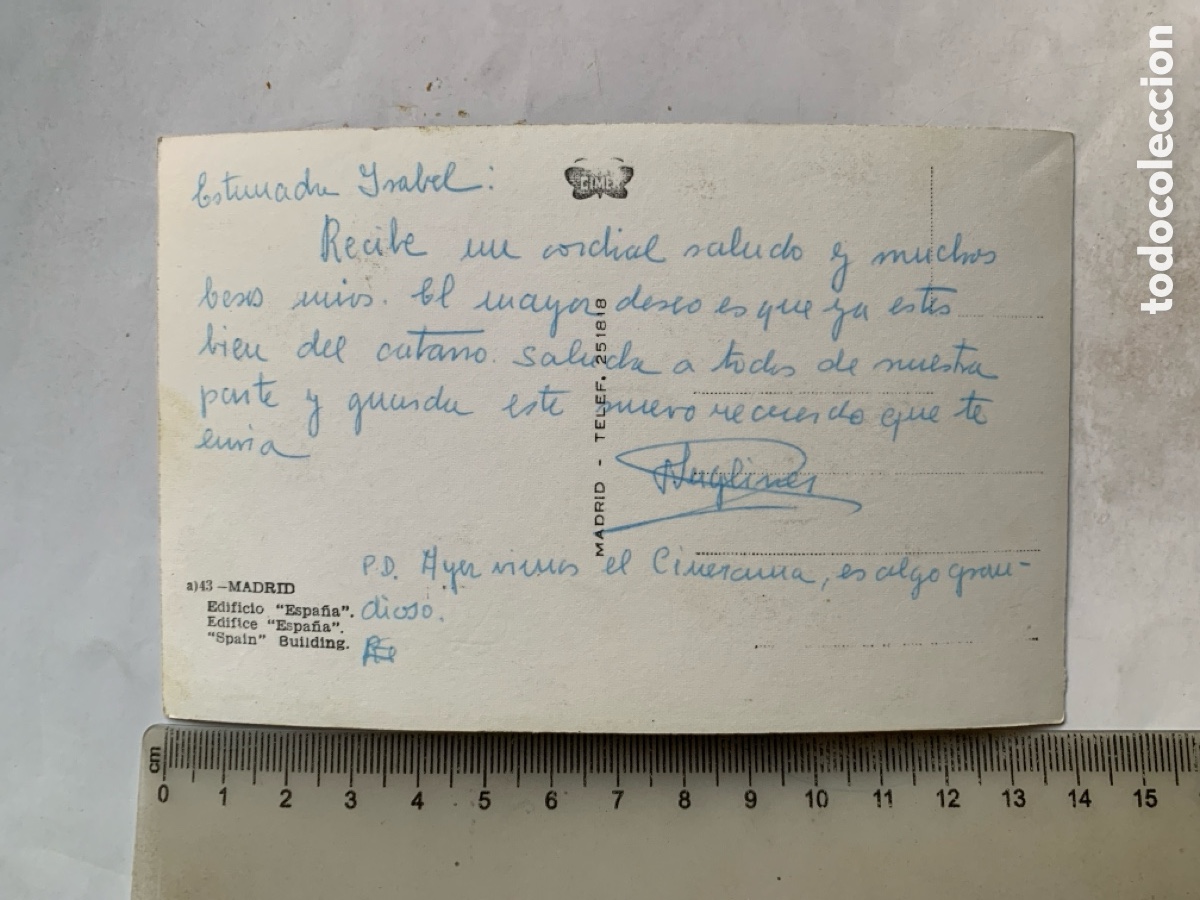 Estimada Ysabel:
CIMEX
Recibe un cordial saludo y muchos
besos mios. El mayor deseo es que ya estés
bien del catarro. Saluda a todos de nuestra
parte y guarda este nuevo recuerdo que te
envia
MADRID - TELEF. 251818
P.D. Ayer vimos el Cinerama, es algo gran-
dioso.
a)43 -MADRID
Edificio "España".
Edifice "España".
"Spain" Building.
cm
0 1 2 3 4 5 6 7 8 9 10 11 12 13 14 15
todocoleccion